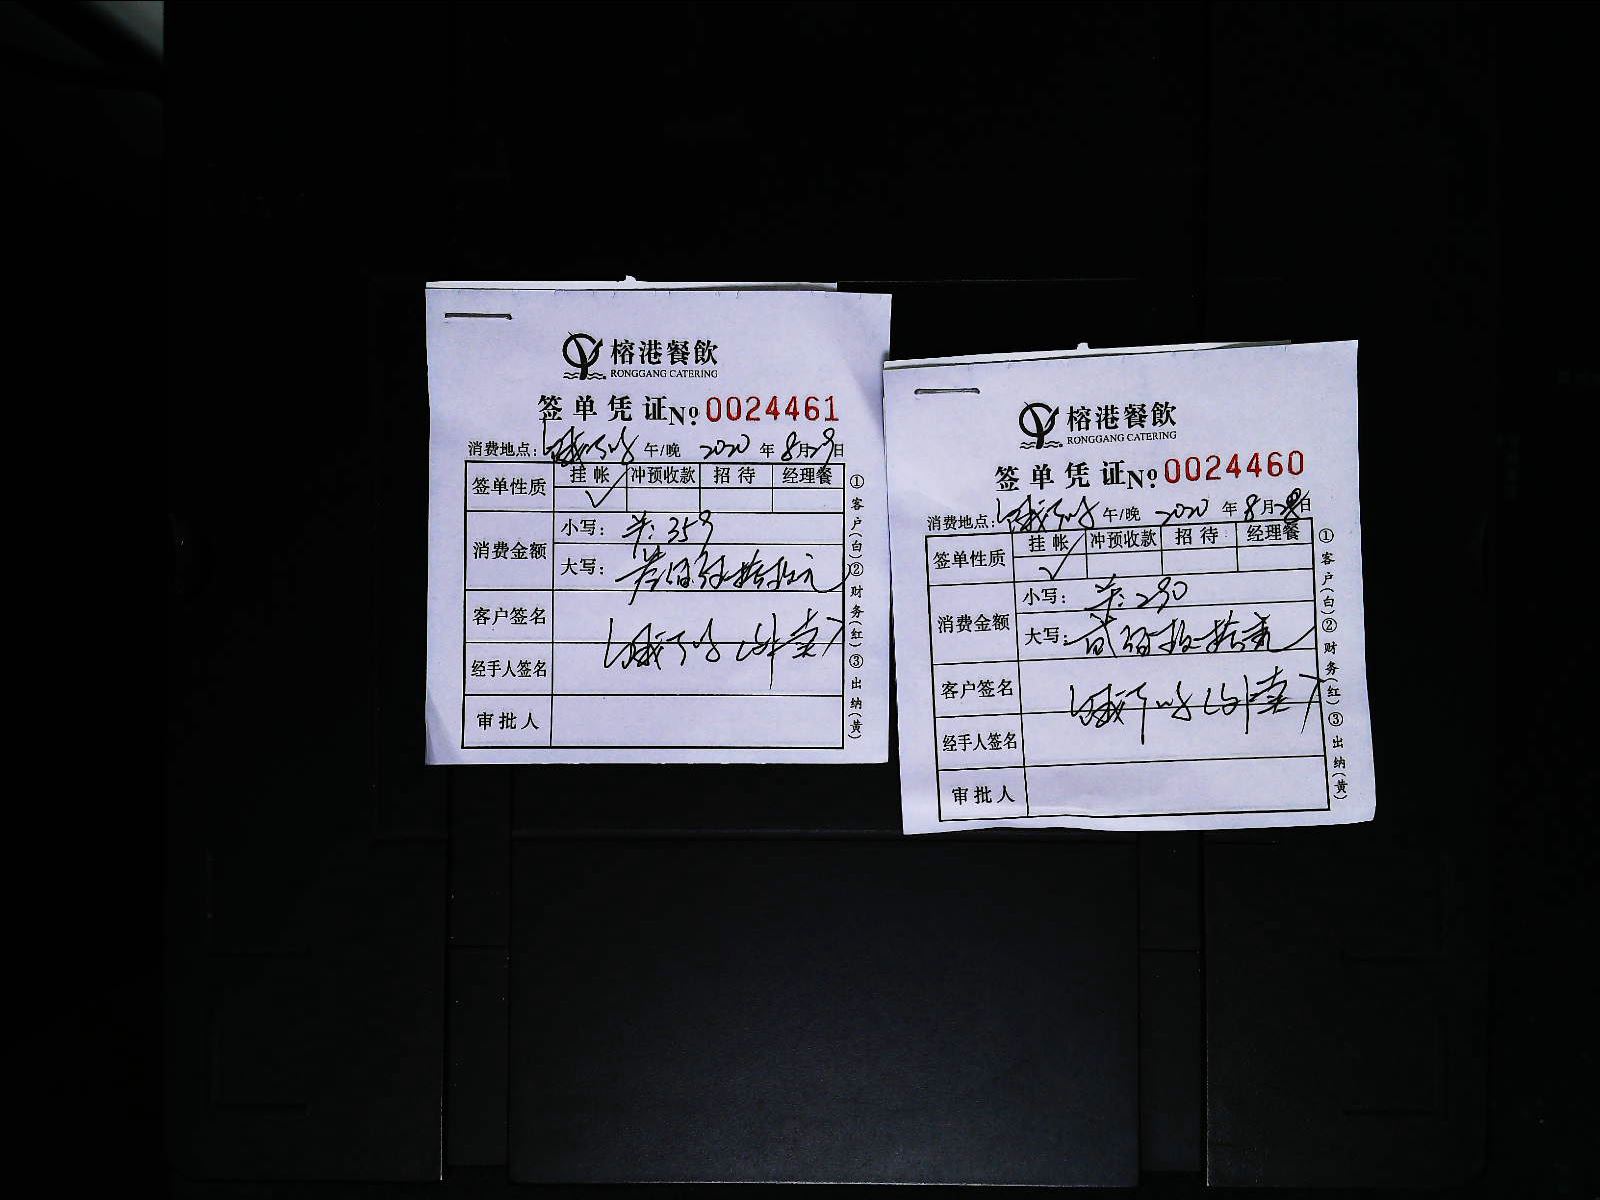 榕港餐飲
RONGGANG CATERING
签单凭证 No 0024461
消费地点: 饿了吗 午/晚 2020 年 8月29日
签单性质 挂帐 冲预收款 招待 经理餐
✓
消费金额 小写: 羊: 359
大写: 叁佰伍拾玖元
客户签名
饿了吗(外卖)
经手人签名
审批人
①客户(白)②财务(红)③出纳(黄)
榕港餐飲
RONGGANG CATERING
签单凭证 No 0024460
消费地点: 饿了吗 午/晚 2020 年 8月28日
签单性质 挂帐 冲预收款 招待 经理餐
✓
消费金额 小写: 羊: 290
大写: 贰佰玖拾元
客户签名
饿了吗(外卖)
经手人签名
审批人
①客户(白)②财务(红)③出纳(黄)